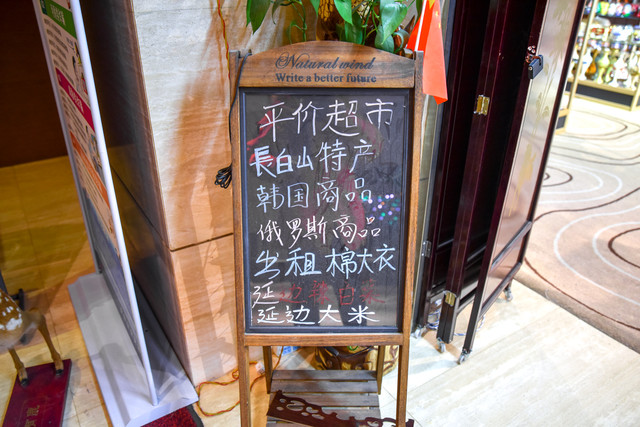 Natural wind
Write a better future
平价超市
長白山特产
韩国商品
俄罗斯商品
出租棉大衣
延边大米